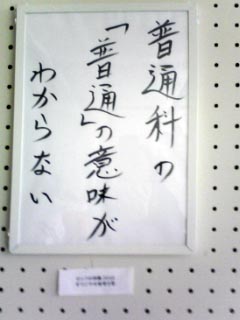 普通科の
「普通」の意味が
わからない